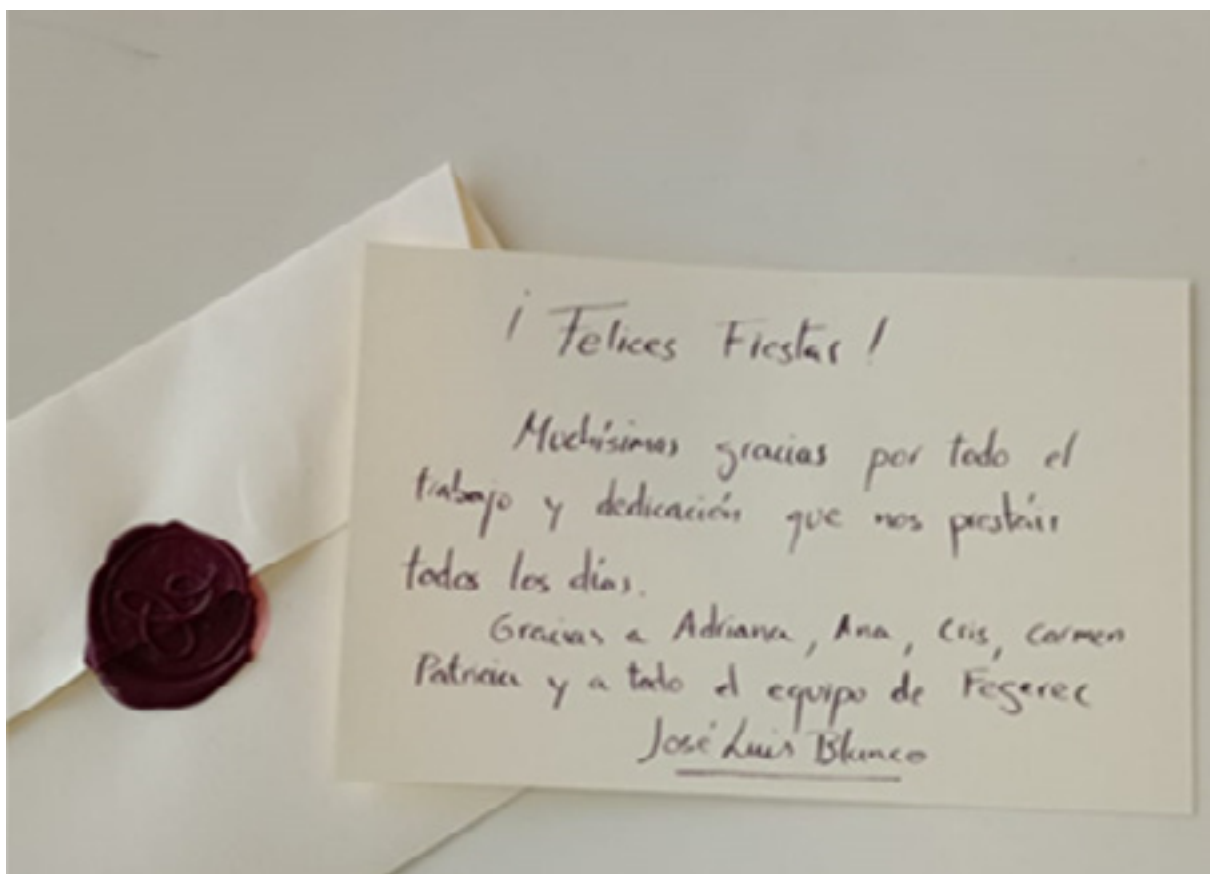 ¡Felices Fiestas!
Muchísimas gracias por todo el
trabajo y dedicación que nos prestáis
todos los días.
Gracias a Adriana, Ana, Cris, Carmen
Patricia y a todo el equipo de Fegerec
José Luis Blanco